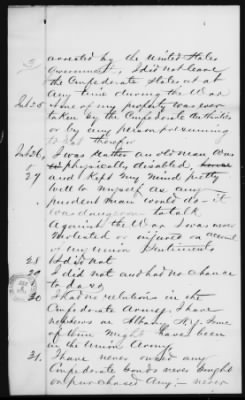 3
arrested by the United States
Government, I did not leave
the Confederate States at
any time during the War
Int 25 None of my property was ever
taken by the Confederate Authorities
or by any person presuming
to act therefor
Int 26 I was rather an old man was
physically disabled,
27 and kept my mind pretty
well to myself as any
prudent man would do - it
was dangerous to talk
Against the War I was never
molested or injured on account
of my Union Sentiments
28 I did not
29 I did not and had no chance
to do so
30 I had no relations in the
Confederate Army, I have
nephews in Albany N.Y. some
of them might have been
in the Union Army
31. I have never owned any
Confederate bonds never bought
or purchased Any - never